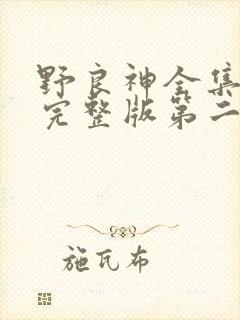 野良神全集
完整版第二
施瓦布